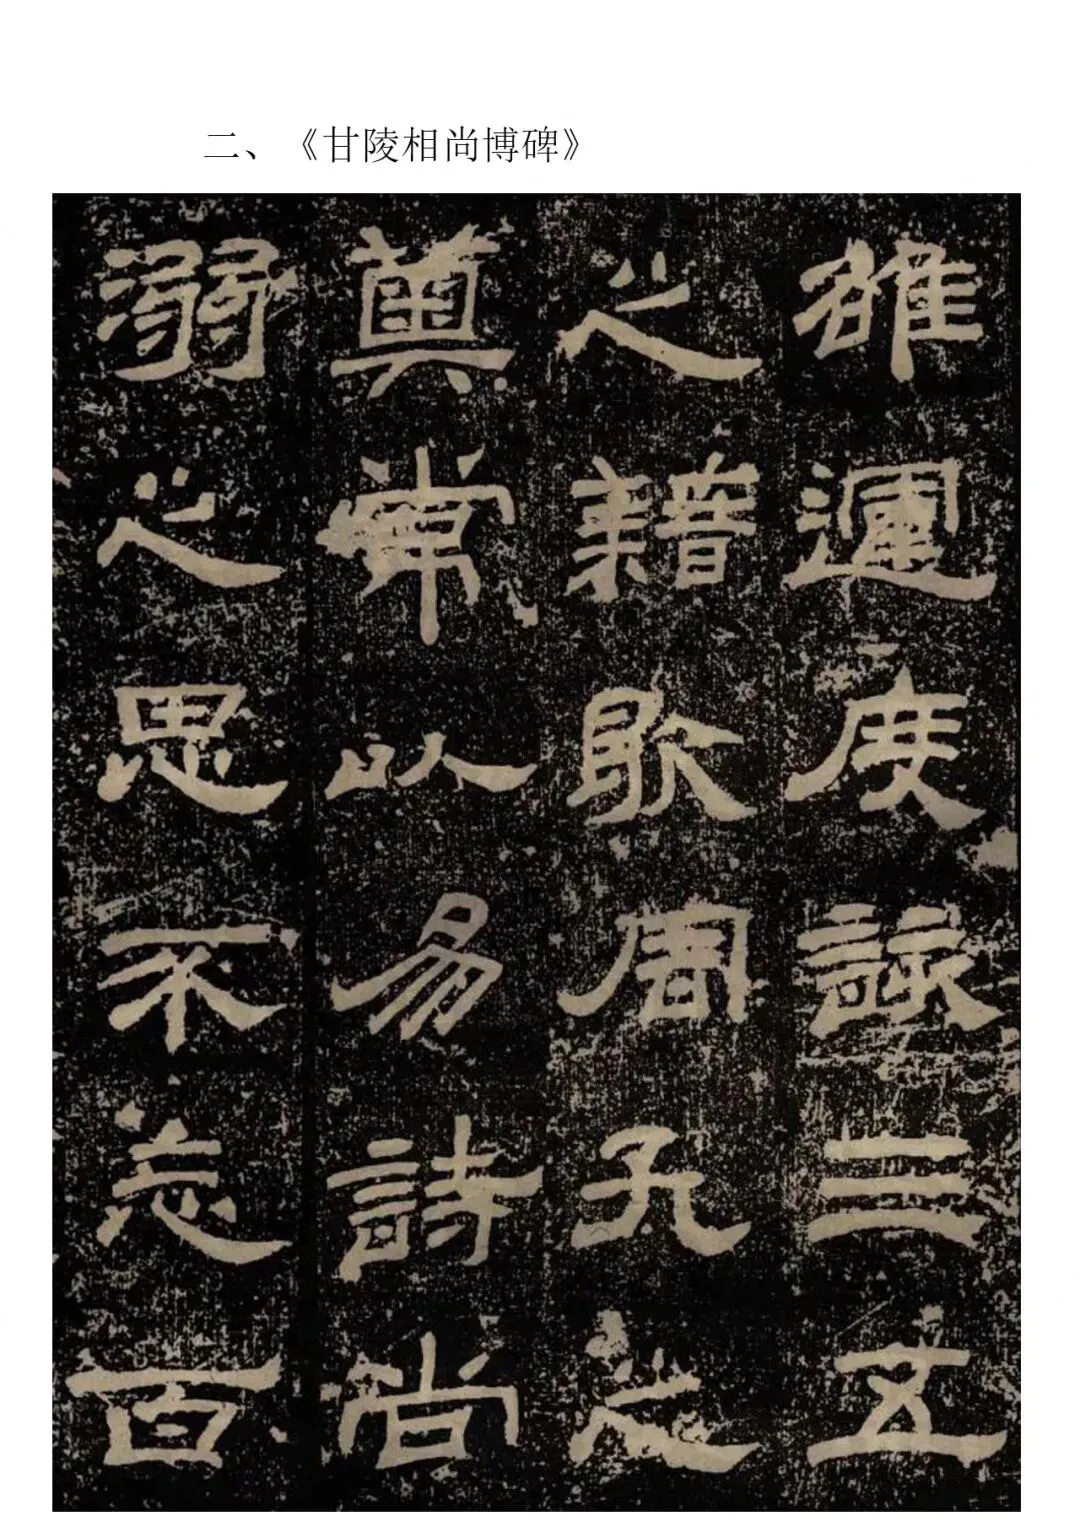 二、《甘陵相尚博碑》
邇度詠三五
之籍歌周孔之
典常以易詩尚
溺之思不忘百